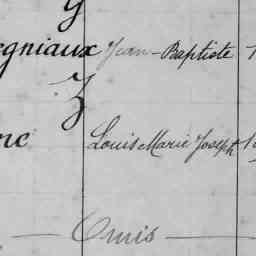 Y
egniaux Jean-Baptiste 1
Z
nc Louis Marie Joseph 1
— Omis —